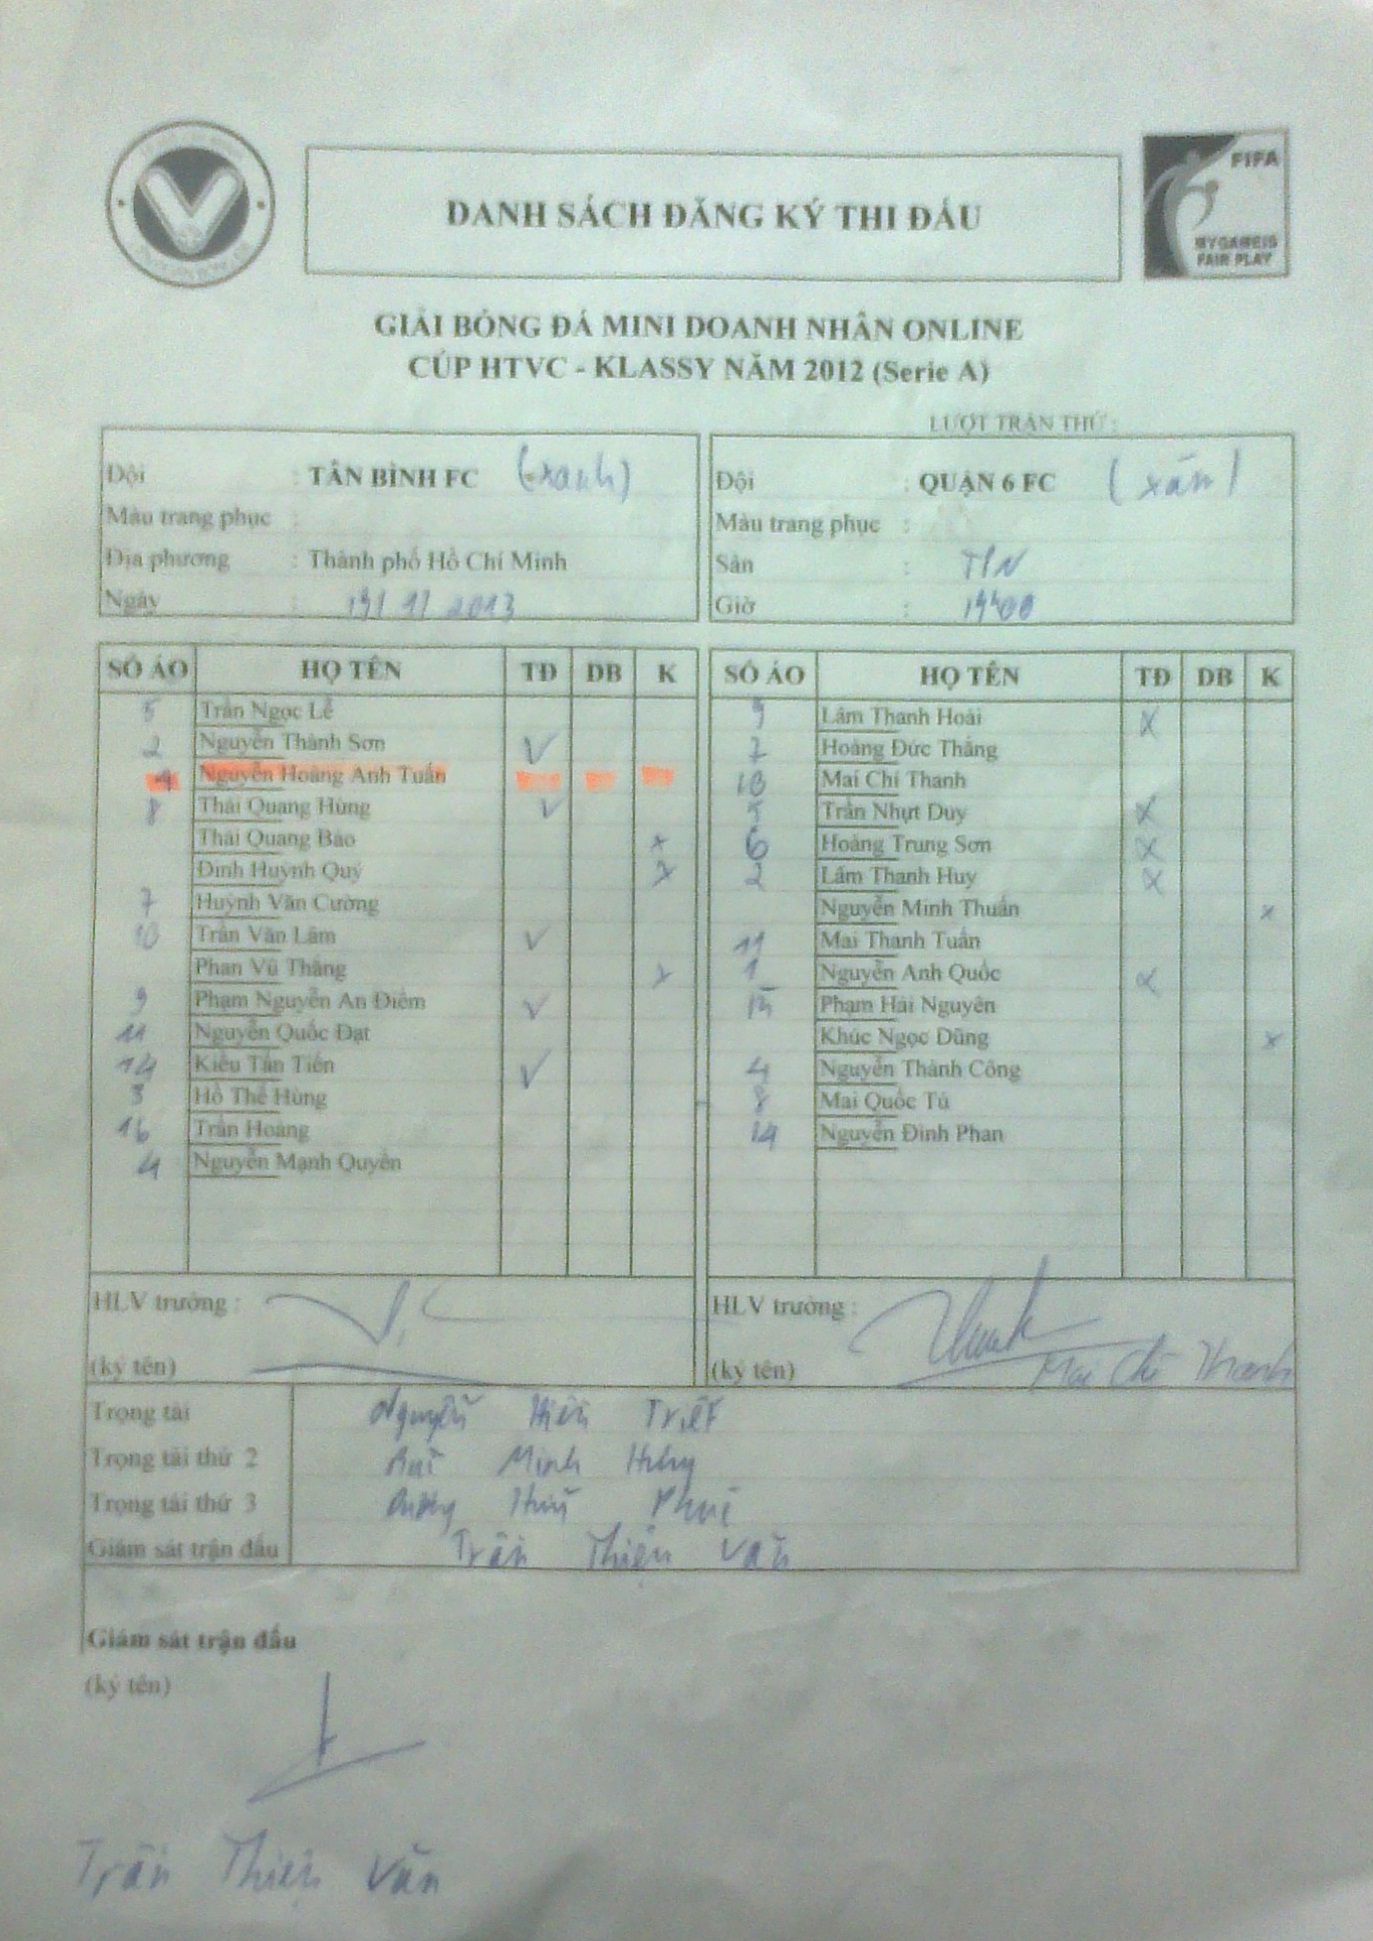 DANH SÁCH ĐĂNG KÝ THI ĐẤU
FIFA
MY GAME IS
FAIR PLAY
GIẢI BÓNG ĐÁ MINI DOANH NHÂN ONLINE
CÚP HTVC - KLASSY NĂM 2012 (Serie A)
LƯỢT TRẬN THỨ :
Đội : TÂN BÌNH FC (xanh)
Màu trang phục :
Địa phương : Thành phố Hồ Chí Minh
Ngày : 2013
Đội : QUẬN 6 FC (xám)
Màu trang phục :
Sân :
Giờ :
SỐ ÁO HỌ TÊN TĐ DB K
5 Trần Ngọc Lễ
2 Nguyễn Thành Sơn V
Nguyễn Hoàng Anh Tuấn
8 Thái Quang Hùng V
Thái Quang Bảo x
Đinh Huỳnh Quý x
7 Huỳnh Văn Cường
10 Trần Văn Lâm V
Phan Vũ Thắng x
9 Phạm Nguyễn An Điềm V
11 Nguyễn Quốc Đạt
14 Kiều Tấn Tiến V
3 Hồ Thế Hùng
16 Trần Hoàng
4 Nguyễn Mạnh Quyền
SỐ ÁO HỌ TÊN TĐ DB K
9 Lâm Thanh Hoài x
7 Hoàng Đức Thắng
10 Mai Chí Thanh
Trần Nhựt Duy x
6 Hoàng Trung Sơn x
2 Lâm Thanh Huy x
Nguyễn Minh Thuấn x
11 Mai Thanh Tuấn
1 Nguyễn Anh Quốc x
Phạm Hải Nguyên
Khúc Ngọc Dũng x
4 Nguyễn Thành Công
8 Mai Quốc Tú
14 Nguyễn Đình Phan
HLV trưởng :
(ký tên)
HLV trưởng :
(ký tên) Mai Chí Thanh
Trọng tài Nguyễn Hiền Triết
Trọng tài thứ 2 Bùi Minh Hưng
Trọng tài thứ 3 Dương Hữu Phúc
Giám sát trận đấu Trần Thiện Văn
Giám sát trận đấu
(ký tên)
Trần Thiện Văn